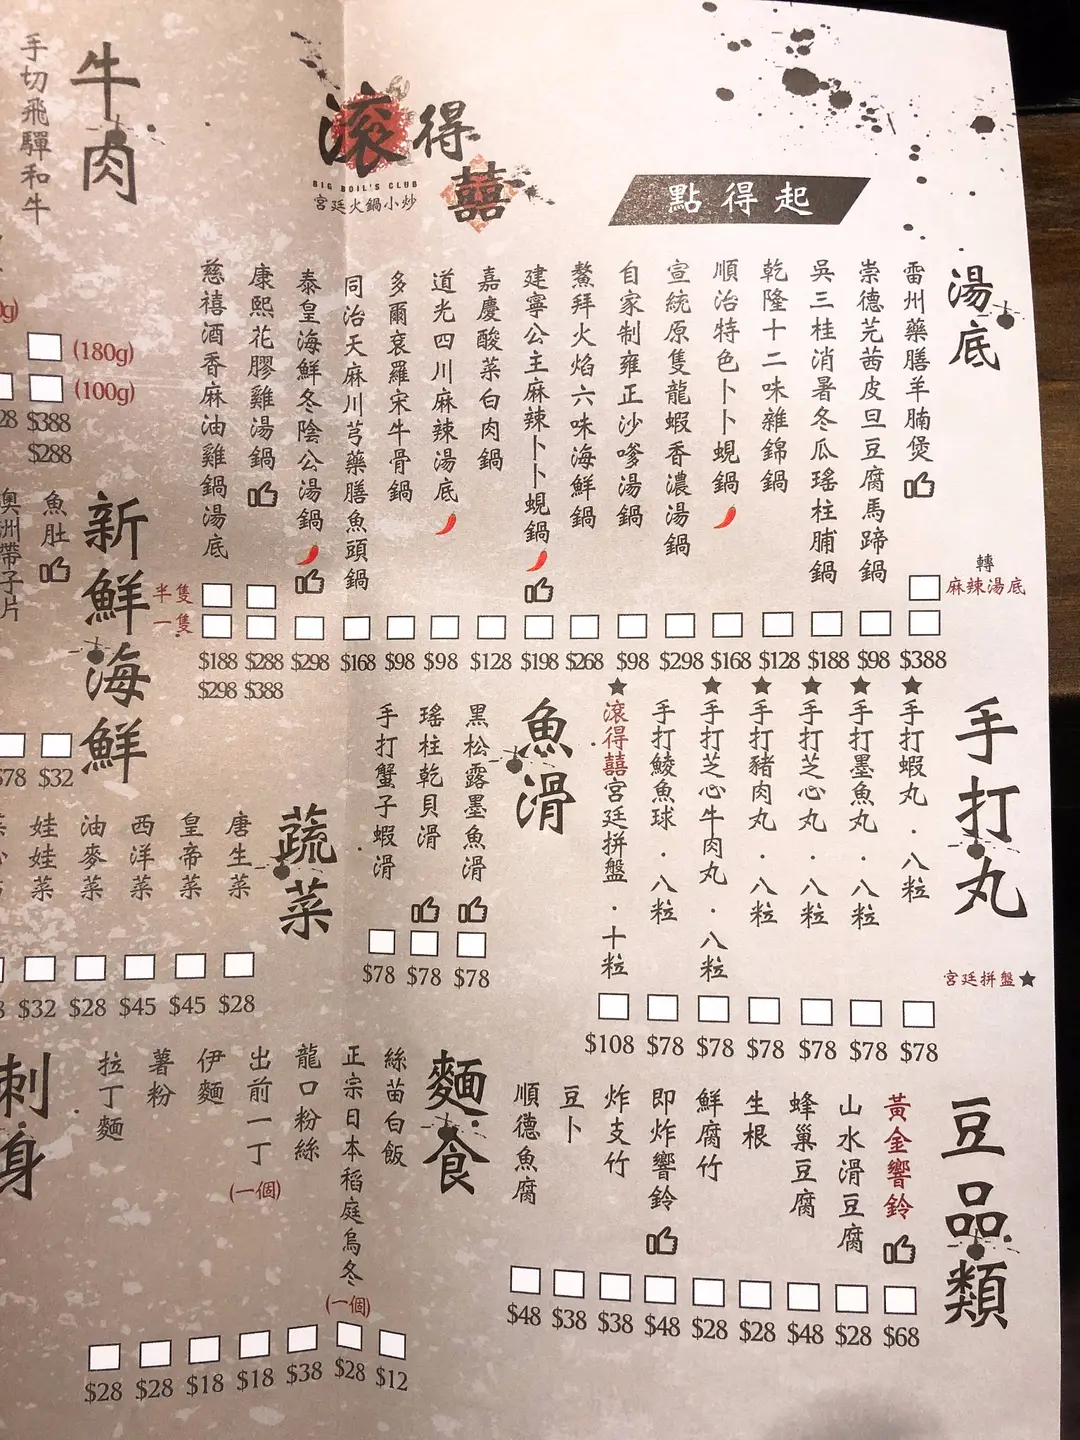 滾得囍
BIG BOIL'S CLUB
宮廷火鍋小炒
點得起
湯底
雷州藥膳羊腩煲
崇德芫茜皮旦豆腐馬蹄鍋
吳三桂消暑冬瓜瑤柱脯鍋
乾隆十二味雜錦鍋
順治特色卜卜蜆鍋
宣統原隻龍蝦香濃湯鍋
自家制雍正沙嗲湯鍋
鰲拜火焰六味海鮮鍋
建寧公主麻辣卜卜蜆鍋
嘉慶酸菜白肉鍋
道光四川麻辣湯底
多爾袞羅宋牛骨鍋
同治天麻川芎藥膳魚頭鍋
泰皇海鮮冬陰公湯鍋
康熙花膠雞湯鍋
慈禧酒香麻油雞鍋湯底
轉
麻辣湯底
半隻
一隻
$188 $288 $298 $168 $98 $98 $128 $198 $268 $98 $298 $168 $128 $188 $98 $388
$298 $388
手打丸
手打蝦丸．八粒
手打墨魚丸．八粒
手打芝心丸．八粒
手打豬肉丸．八粒
手打芝心牛肉丸．八粒
手打鯪魚球．八粒
滾得囍宮廷拼盤．十粒
宮廷拼盤★
$108 $78 $78 $78 $78 $78 $78
魚滑
黑松露墨魚滑
瑤柱乾貝滑
手打蟹子蝦滑
$78 $78 $78
豆品類
黃金響鈴
山水滑豆腐
蜂巢豆腐
生根
鮮腐竹
即炸響鈴
炸支竹
豆卜
順德魚腐
$48 $38 $38 $48 $28 $28 $48 $28 $68
麵食
絲苗白飯
正宗日本稻庭烏冬
(一個)
龍口粉絲
出前一丁
(一個)
伊麵
薯粉
拉丁麵
$28 $28 $18 $18 $38 $28 $12
蔬菜
唐生菜
皇帝菜
西洋菜
油麥菜
娃娃菜
$32 $28 $45 $45 $28
牛肉
手切飛驒和牛
(180g)
(100g)
$388
$288
新鮮海鮮
魚肚
澳洲帶子片
$78 $32
刺身